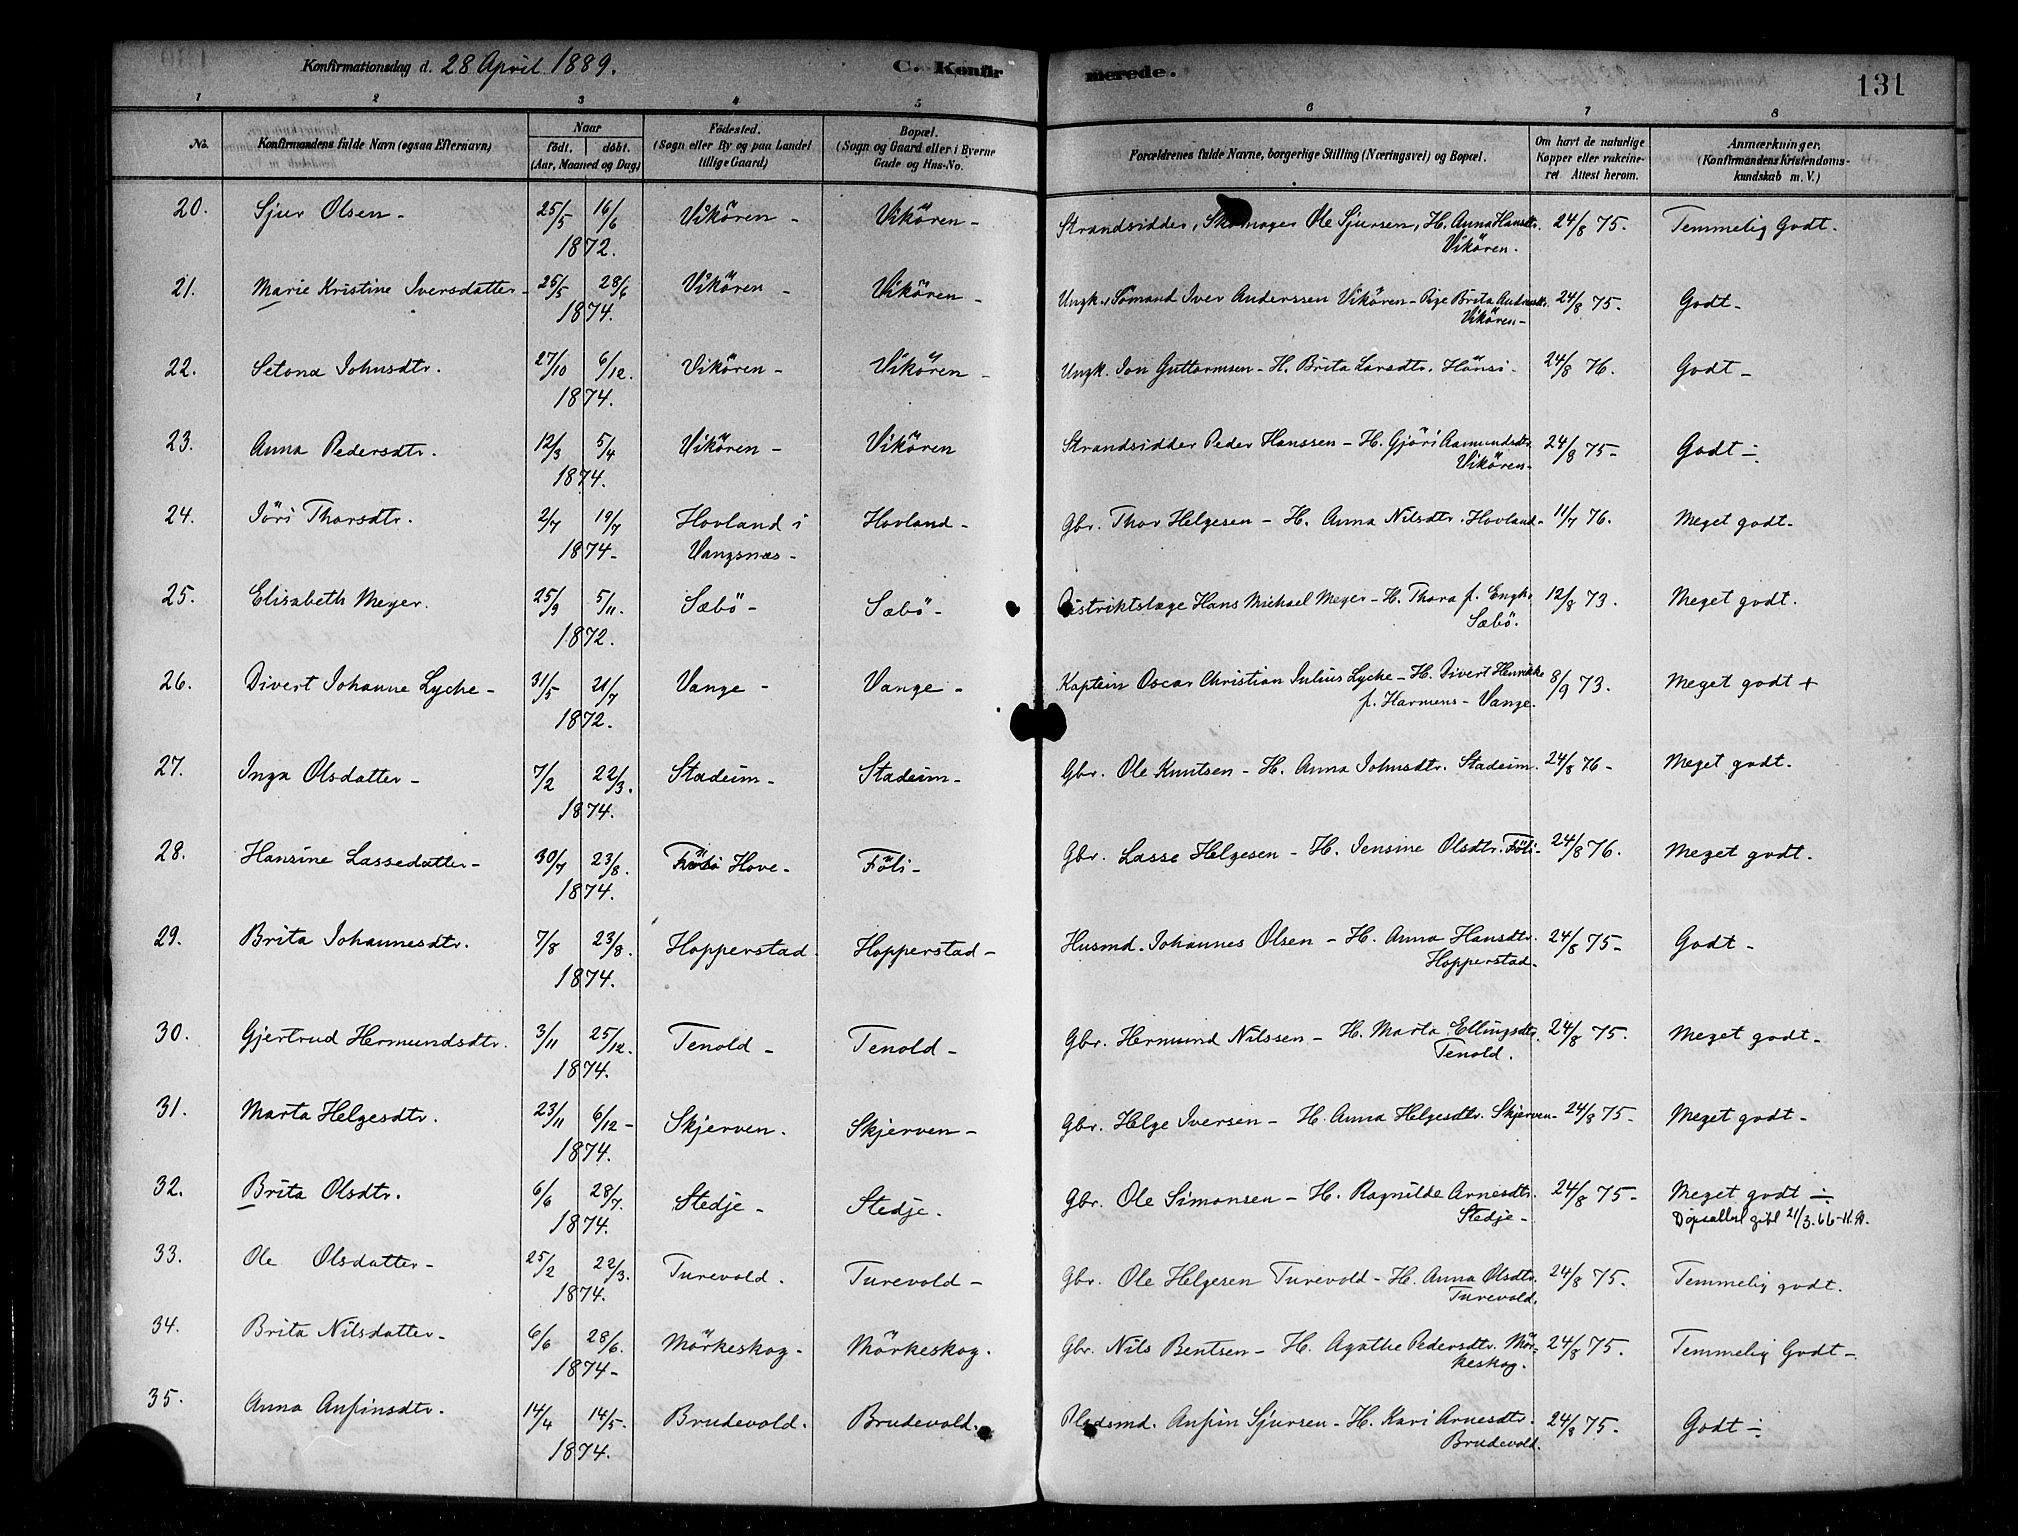 Konfirmationsdag d. 28 April 1889.
C. Konfirmerede.
131
1 2 3 4 5 6 7 8
No.
Konfirmandens fulde Navn (ogsaa Efternavn)
Naar
født. døbt.
(Aar, Maaned og Dag)
Fødested.
(Sogn eller By og paa Landet
tillige Gaard)
Bopæl.
(Sogn og Gaard eller i Byerne
Gade og Hus-No.
Forældrenes fulde Navne, borgerlige Stilling (Næringsvei) og Bopæl.
Om havt de naturlige
Kopper eller vakcine-
ret. Attest herom.
Anmærkninger.
(Konfirmandens Kristendoms-
kundskab m. V.)
20. Sjur Olsen - 25/5 16/6 Vikören - Vikören - Strandsidder, Skomager Ole Sjursen, H. Anna Hansdtr. 24/8 75. Temmelig Godt.
1872. Vikören.
21. Marie Kristine Iversdatter - 25/5 28/6 Vikören - Vikören - Ungk. Sömand Iver Anderssen Vikören - Pige Brita 24/8 75. Godt -
1874. Vikören -
22. Setona Johnsdtr. 27/10 6/12. Vikören - Vikören - Ungk. Jon Guttormsen - H. Brita Larsdtr. Hönsi - 24/8 76. Godt -
1874.
23. Anna Pedersdtr. 12/3 5/4 Vikören - Vikören Strandsidder Peder Hanssen - H. Gjöri Aamundsdtr. 24/8 75 - Godt ÷
1874. Vikören -
24. Jöri Thorsdtr. 2/7 19/7 Hovland i Hovland - Gbr. Thor Helgesen - H. Anna Nilsdtr. Hovland - 11/7 76. Meget godt -
1874 - Vangsnæs -
25. Elisabeth Meyer. 25/9 5/11. Sæbö - Sæbö - Distriktslæge Hans Michael Meyer - H. Thora f. Engh. 12/8 73. Meget godt.
1872. Sæbö.
26. Divert Johanne Lyche - 31/5 21/7 Vange - Vange - Kaptein Oscar Christian Julius Lyche - H. Divert Henrikke 8/9 73. Meget godt +
1872. f. Harmens - Vange.
27. Inga Olsdatter - 7/2 22/3. Stadeim - Stadeim - Gbr. Ole Knutsen - H. Anna Johnsdtr. Stadeim. 24/8 76 - Meget godt.
1874.
28. Hansine Lassedatter - 30/7 23/8. Hove - Föli - Gbr. Lasse Helgesen - H. Jensine Olsdtr. Föli - 24/8 76. Meget godt.
1874.
29. Brita Johannesdtr. 7/8 23/8. Hopperstad. Hopperstad - Husmd. Johannes Olsen - H. Anna Hansdtr. 24/8 75 - Godt -
1874. Hopperstad -
30. Gjertrud Hermundsdtr. 3/11 25/12. Tenold - Tenold - Gbr. Hermund Nilssen - H. Marta Ellingsdtr. 24/8 75. Meget godt -
1874. Tenold.
31. Marta Helgesdtr. 23/11 6/12 - Skjerven. Skjerven - Gbr. Helge Iversen - H. Anna Helgesdtr. Skjerven - 24/8 75 - Meget godt -
1874.
32. Brita Olsdtr. 6/6 28/7. Stedje - Stedje. Gbr. Ole Simonsen - H. Ragnilde Arnesdtr. 24/8 75 - Meget godt ÷
1874. Stedje - 21/3.66
33. Ole Olsdatter - 25/2 22/3. Turevold. Turevold - Gbr. Ole Helgesen Turevold - H. Anna Olsdtr. 24/8 75. Temmelig godt.
1874. Turevold.
34. Brita Nilsdatter - 6/6 28/6. Mörkeskog - Mörkeskog. Gbr. Nils Bentsen - H. Agathe Pedersdtr. Mör- 24/8 75. Temmelig Godt -
1874 - keskog.
35. Anna Anfinsdtr. 14/4 14/5. Brudevold. Brudevold. Pladsmd. Anfin Sjursen - H. Kari Arnesdtr. 24/8 75. Godt ÷
1874. Brudevold.